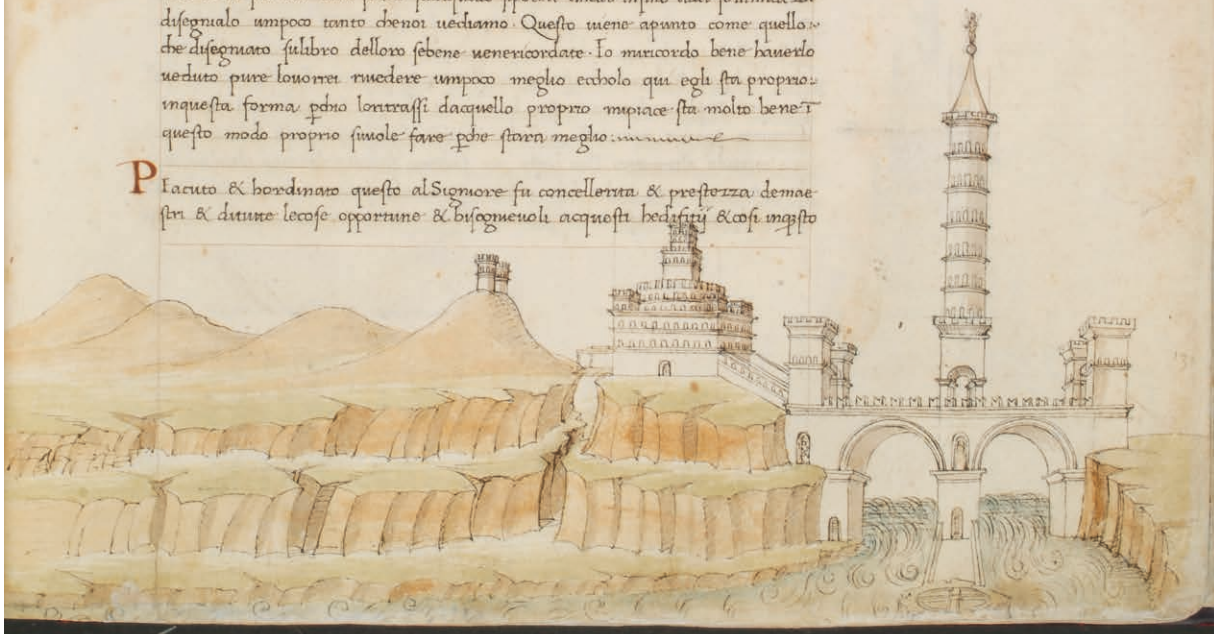 disegnialo umpoco tanto chenoi vediamo. Questo viene apunto come quello
che disegniato sulibro delloro sebene venericordate. Io miricordo bene haverlo
veduto pure lovorrei rivedere umpoco meglio eccholo qui egli sta proprio
inquesta forma perchio loritrassi dacquello proprio mipiace sta molto bene I
questo modo proprio sivole fare perche stara meglio
Piaciuto & hordinato questo al Signiore fu concellerita & prestezza demae
stri & ditutte lecose opportune & bisognievoli acquesti hedifitij & cosi inquesto